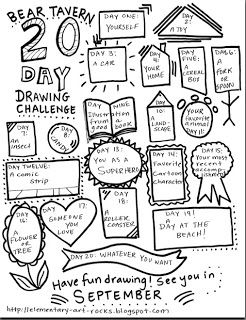 BEAR TAVERN
20
DAY
DRAWING
CHALLENGE
DAY ONE:
YOURSELF
DAY 2:
A TOY
DAY 3:
A CAR
DAY 4:
YOUR
HOME
DAY
FIVE:
A
CEREAL
BOX
DAY 6:
A
FORK
OR
SPOON
DAY 7:
AN
INSECT
DAY 8:
DAY NINE
Illustration
from a
good book
DAY
10:
A
LAND-
SCAPE
Your
favorite
animal
DAY 11:
DAY TWELVE:
A comic
strip
DAY 13:
YOU AS A
SUPERHERO
DAY 14:
Favorite
Cartoon
Character
DAY 15:
Your most
recent
accomp-
lishment
DAY
16:
A
FLOWER
OR
TREE
DAY 17:
SOMEONE
YOU
LOVE
DAY
18:
A
ROLLER
COASTER
DAY 19!
A
DAY AT
THE BEACH!
DAY 20: WHATEVER YOU WANT
Have fun drawing! See you in
SEPTEMBER
http://elementary-art-rocks.blogspot.com